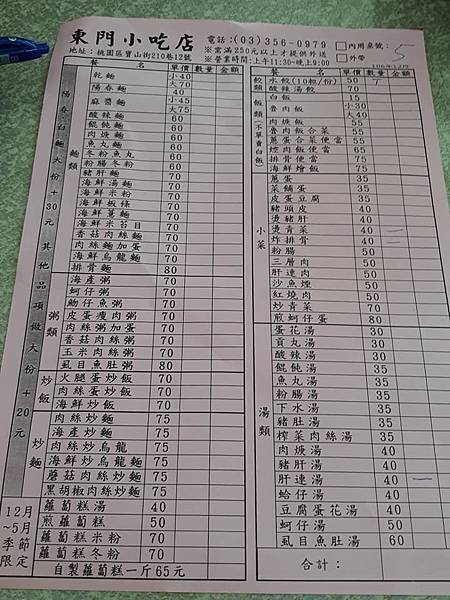 東門小吃店 電話:(03)356-0979 □內用桌號: 5
地址:桃園區寶山街210巷12號 ※需滿250元以上才提供外送 □外帶
※營業時間:上午11:30-晚上9:00
餐 名 單價 數量 金額
陽春、白麵大份+30元 其他品項做大份+20元
麵類
乾麵 小40
陽春麵 大70
麻醬麵 小45 大75
酸辣麵 60
餛飩麵 60
魚丸麵 60
冬粉魚丸 60
粉腸冬粉 60
豬肝麵 70
海鮮湯麵 70
海鮮米粉 70
海鮮板條 70
海鮮薏麵 70
海鮮米苔目 70
香菇肉絲麵 70
肉絲麵加蛋 70
海鮮烏龍麵 70
排骨麵 80
粥類
海產粥 70
蚵仔粥 70
魩仔魚粥 70
皮蛋瘦肉粥 70
肉絲粥加蛋 70
香菇肉絲粥 70
玉米肉絲粥 70
虱目魚肚粥 80
炒飯
火腿蛋炒飯 70
肉絲蛋炒飯 70
海鮮炒飯 70
炒麵
肉絲炒麵 75
海產炒麵 75
肉絲炒烏龍 75
海鮮炒烏龍麵 75
蘑菇肉絲炒麵 75
黑胡椒肉絲炒麵 75
12月~5月季節限定
蘿蔔糕湯 40
煎蘿蔔糕 50
蘿蔔糕米粉 70
蘿蔔糕冬粉 70
自製蘿蔔糕一斤65元
餐 名 單價 數量 金額
餃類
水餃(10粒/份) 50
酸辣湯餃 70
飯類(不單賣白飯)
白飯 15
魯肉飯 小30 大40
肉焿飯 55
魯肉飯合菜 55
蔥蛋合菜便當 55
煙肉飯便當 65
排骨便當 75
海鮮燴飯 75
小菜
蔥蛋 35
菜餔蛋 35
皮蛋豆腐 35
豬頭皮 40
燙豬肝 40
燙青菜 40 一
炸排骨 40 一
粉腸 50
三層肉 50
肝連肉 50
沙魚煙 50
紅燒肉 50
炒青菜 50
煎蚵仔蛋 80
湯類
蛋花湯 30
貢丸湯 30
酸辣湯 30
餛飩湯 35
魚丸湯 35
粉腸湯 35
下水湯 35
豬肚湯 35
榨菜肉絲湯 35
肉焿湯 40
豬肝湯 40
肝連湯 40 一
蛤仔湯 40
豆腐蛋花湯 40
蚵仔湯 50
虱目魚肚湯 60
合計: